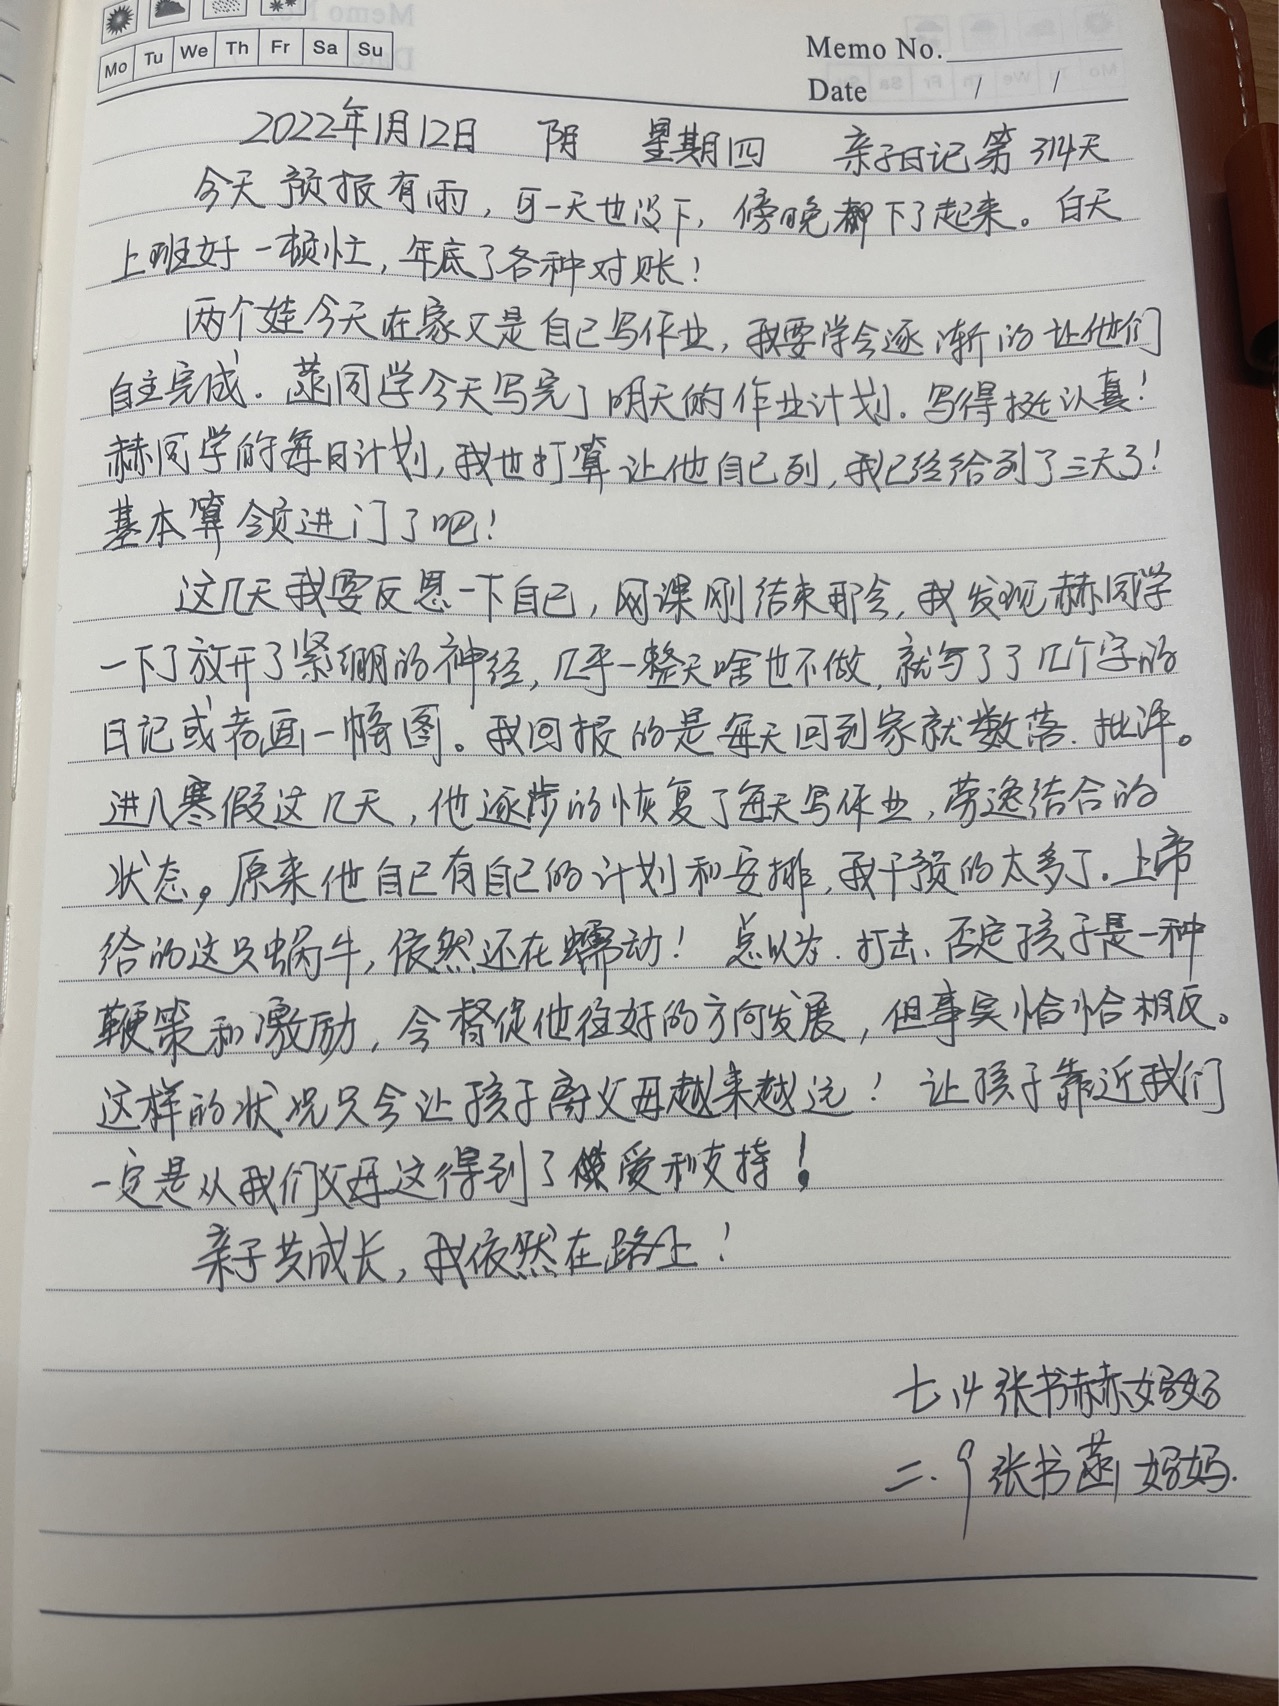 Mo Tu We Th Fr Sa Su
Memo No.
Date / /
2022年1月12日 阴 星期四 亲子日记第314天
今天预报有雨，可一天也没下，傍晚都下了起来。白天
上班好一顿忙，年底了各种对账！
两个娃今天在家又是自己写作业，我要学会逐渐的让他们
自主完成。菡同学今天写完了明天的作业计划．写得挺认真！
赫同学的每日计划，我也打算让他自己列，我已经给列了三天了！
基本算领进门了吧！
这几天我要反思一下自己，网课刚结束那会，我发现赫同学
一下了放开了紧绷的神经，几乎一整天啥也不做，就写了了几个字的
日记或者画一幅图。我回报的是每天回到家就数落、批评。
进入寒假这几天，他逐步的恢复了每天写作业，劳逸结合的
状态。原来他自己有自己的计划和安排，我干预的太多了．上帝
给的这只蜗牛，依然还在蠕动！总以为．打击、否定孩子是一种
鞭策和激励，会督促他往好的方向发展，但事实恰恰相反。
这样的状况只会让孩子离父母越来越远！让孩子靠近我们
一定是从我们父母这得到了爱和支持！
亲子共成长，我依然在路上！
七.14 张书赫妈妈
二.9 张书菡妈妈.